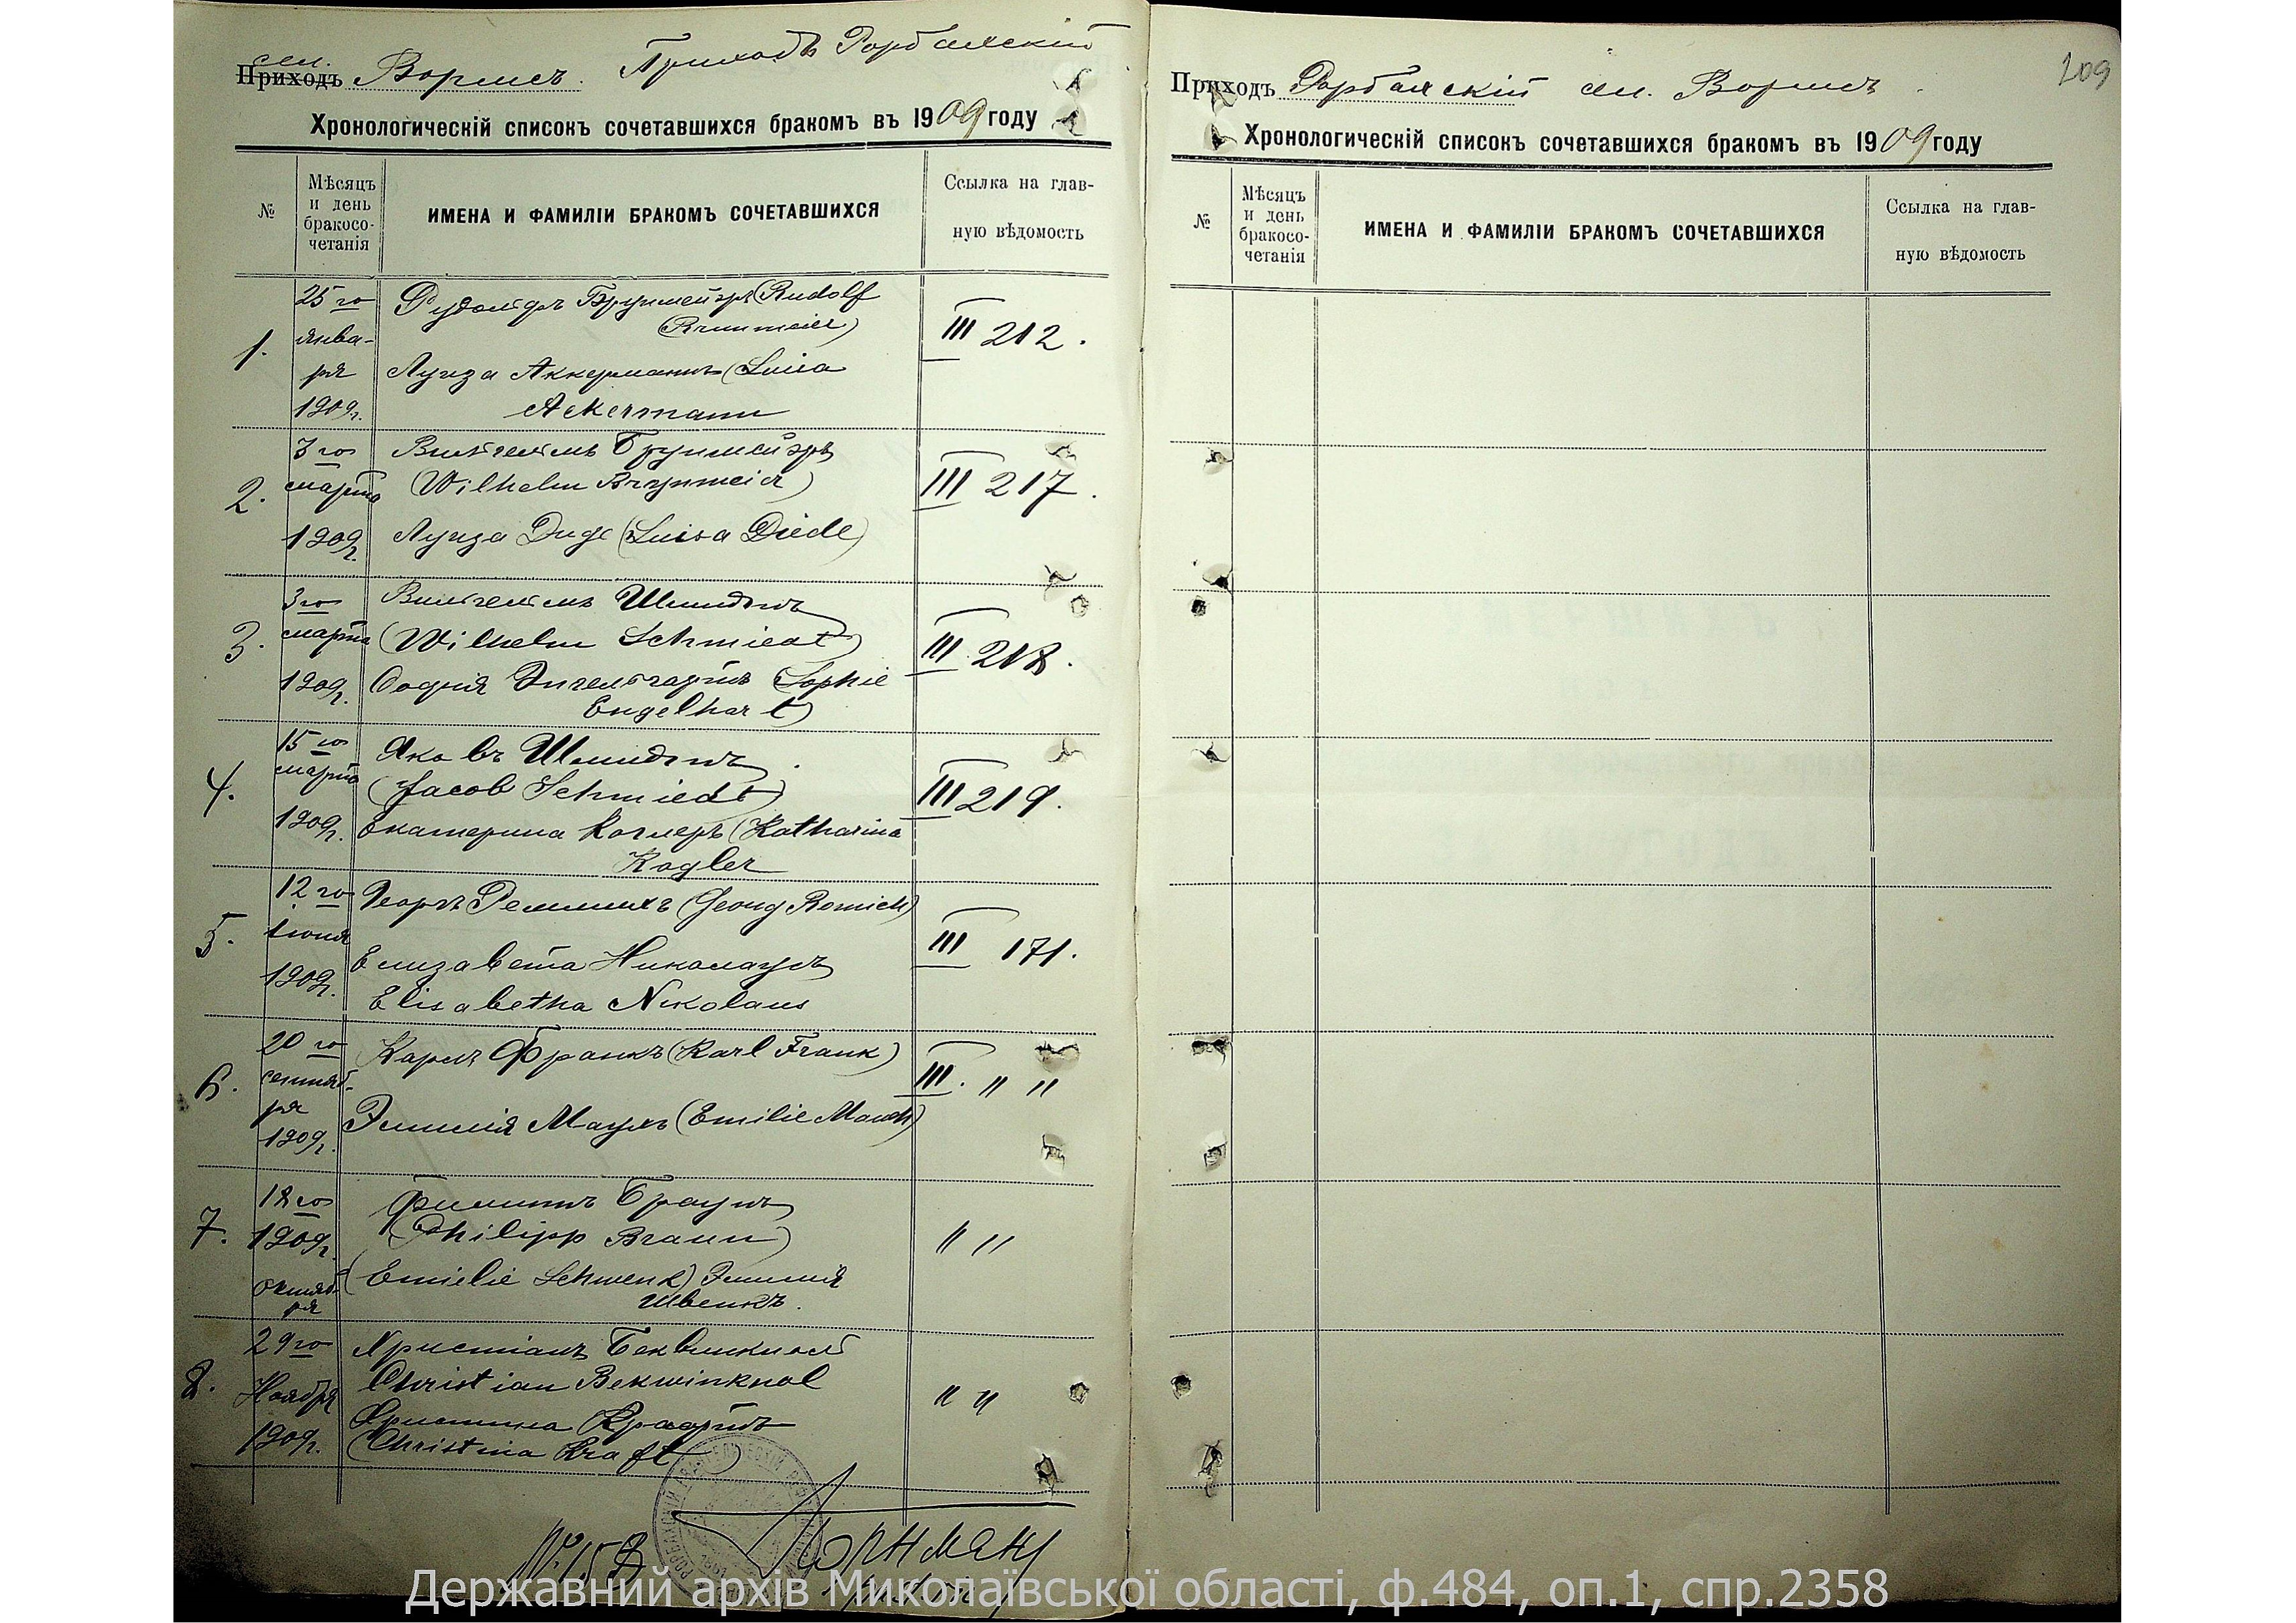 сел.
Приходъ Вормсъ. Приходъ Рорбахскій
Хронологическій списокъ сочетавшихся бракомъ въ 1909 году
№
Мѣсяцъ
и день
бракосо-
четанія
ИМЕНА И ФАМИЛІИ БРАКОМЪ СОЧЕТАВШИХСЯ
Ссылка на глав-
ную вѣдомость
1.
25го
янва-
ря
1909г.
Рудольфъ Брунмейэръ (Rudolf
Brunmeier)
Луиза Аккерманъ (Luisa
Ackermann
III 212.
2.
3го
марта
1909г.
Вильгельмъ Брунмейэръ
(Wilhelm Brunmeier)
Луиза Диде (Luisa Diede)
III 217.
3.
3го
марта
1909г.
Вильгельмъ Шмидтъ
(Wilhelm Schmiedt)
Софія Энгельгартъ (Sophie
Engelhart)
III. 218.
4.
15го
марта
1909г.
Яковъ Шмидтъ
(Jacob Schmiedt)
Екатерина Коглеръ (Katharina
Kogler
III 219.
5.
12го
Iюня
1909г.
Георгъ Реммихъ (Georg Romich)
Елизавета Николаусъ
Elisabetha Nikolaus
III 171.
6.
20го
сентяб-
ря
1909г.
Карлъ Франкъ (Karl Frank)
Эмилія Маухъ (Emilie Mauch)
III. " "
7.
18го
1909г.
октяб-
ря
Филиппъ Браунъ
(Philipp Braun)
(Emielie Schwenk) Эмилія
Швенкъ.
" "
8.
29го
Ноября
1909г.
Христіанъ Беквинкнол
Christian Bekwinknol
Христина Крафтъ
(Christina Kraft)
" "
№ 158
Приходъ Рорбахскій сел. Вормсъ
209
Хронологическій списокъ сочетавшихся бракомъ въ 1909 году
№
Мѣсяцъ
и день
бракосо-
четанія
ИМЕНА И ФАМИЛІИ БРАКОМЪ СОЧЕТАВШИХСЯ
Ссылка на глав-
ную вѣдомость
Державний архів Миколаївської області, ф.484, оп.1, спр.2358